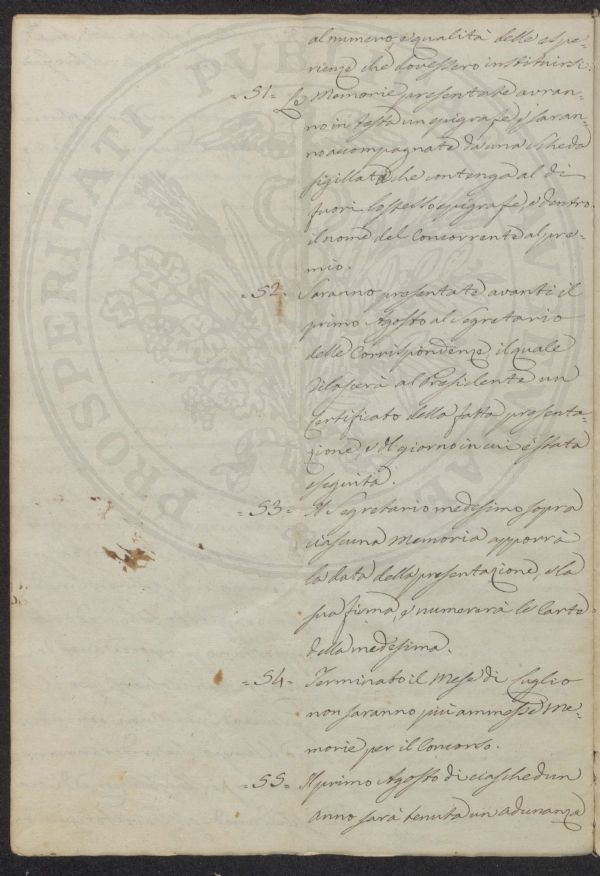 al numero, e qualità delle espe-
rienze che dovessero instituirsi.
=51= Le Memorie presentate avran-
no in testa un epigrafe, e saran-
no accompagnate da una scheda
sigillata che contenga al di
fuori lo stesso epigrafe, e dentro
il nome del Concorrente al pre-
mio.
=52= Saranno presentate avanti il
primo Agosto al Segretario
delle Corrispondenze, il quale
rilascerà al Presidente un
Certificato della fatta presenta-
zione, e il giorno in cui è stata
eseguita.
=53= Il Segretario medesimo sopra
ciascuna Memoria apporrà
la data della presentazione, e la
sua firma, e numererà le Carte
della medesima.
=54= Terminato il Mese di Luglio
non saranno più ammesse Me-
morie per il Concorso.
=55= Il primo Agosto di ciaschedun
anno sarà tenuta un adunanza
PROSPERITATI PUB